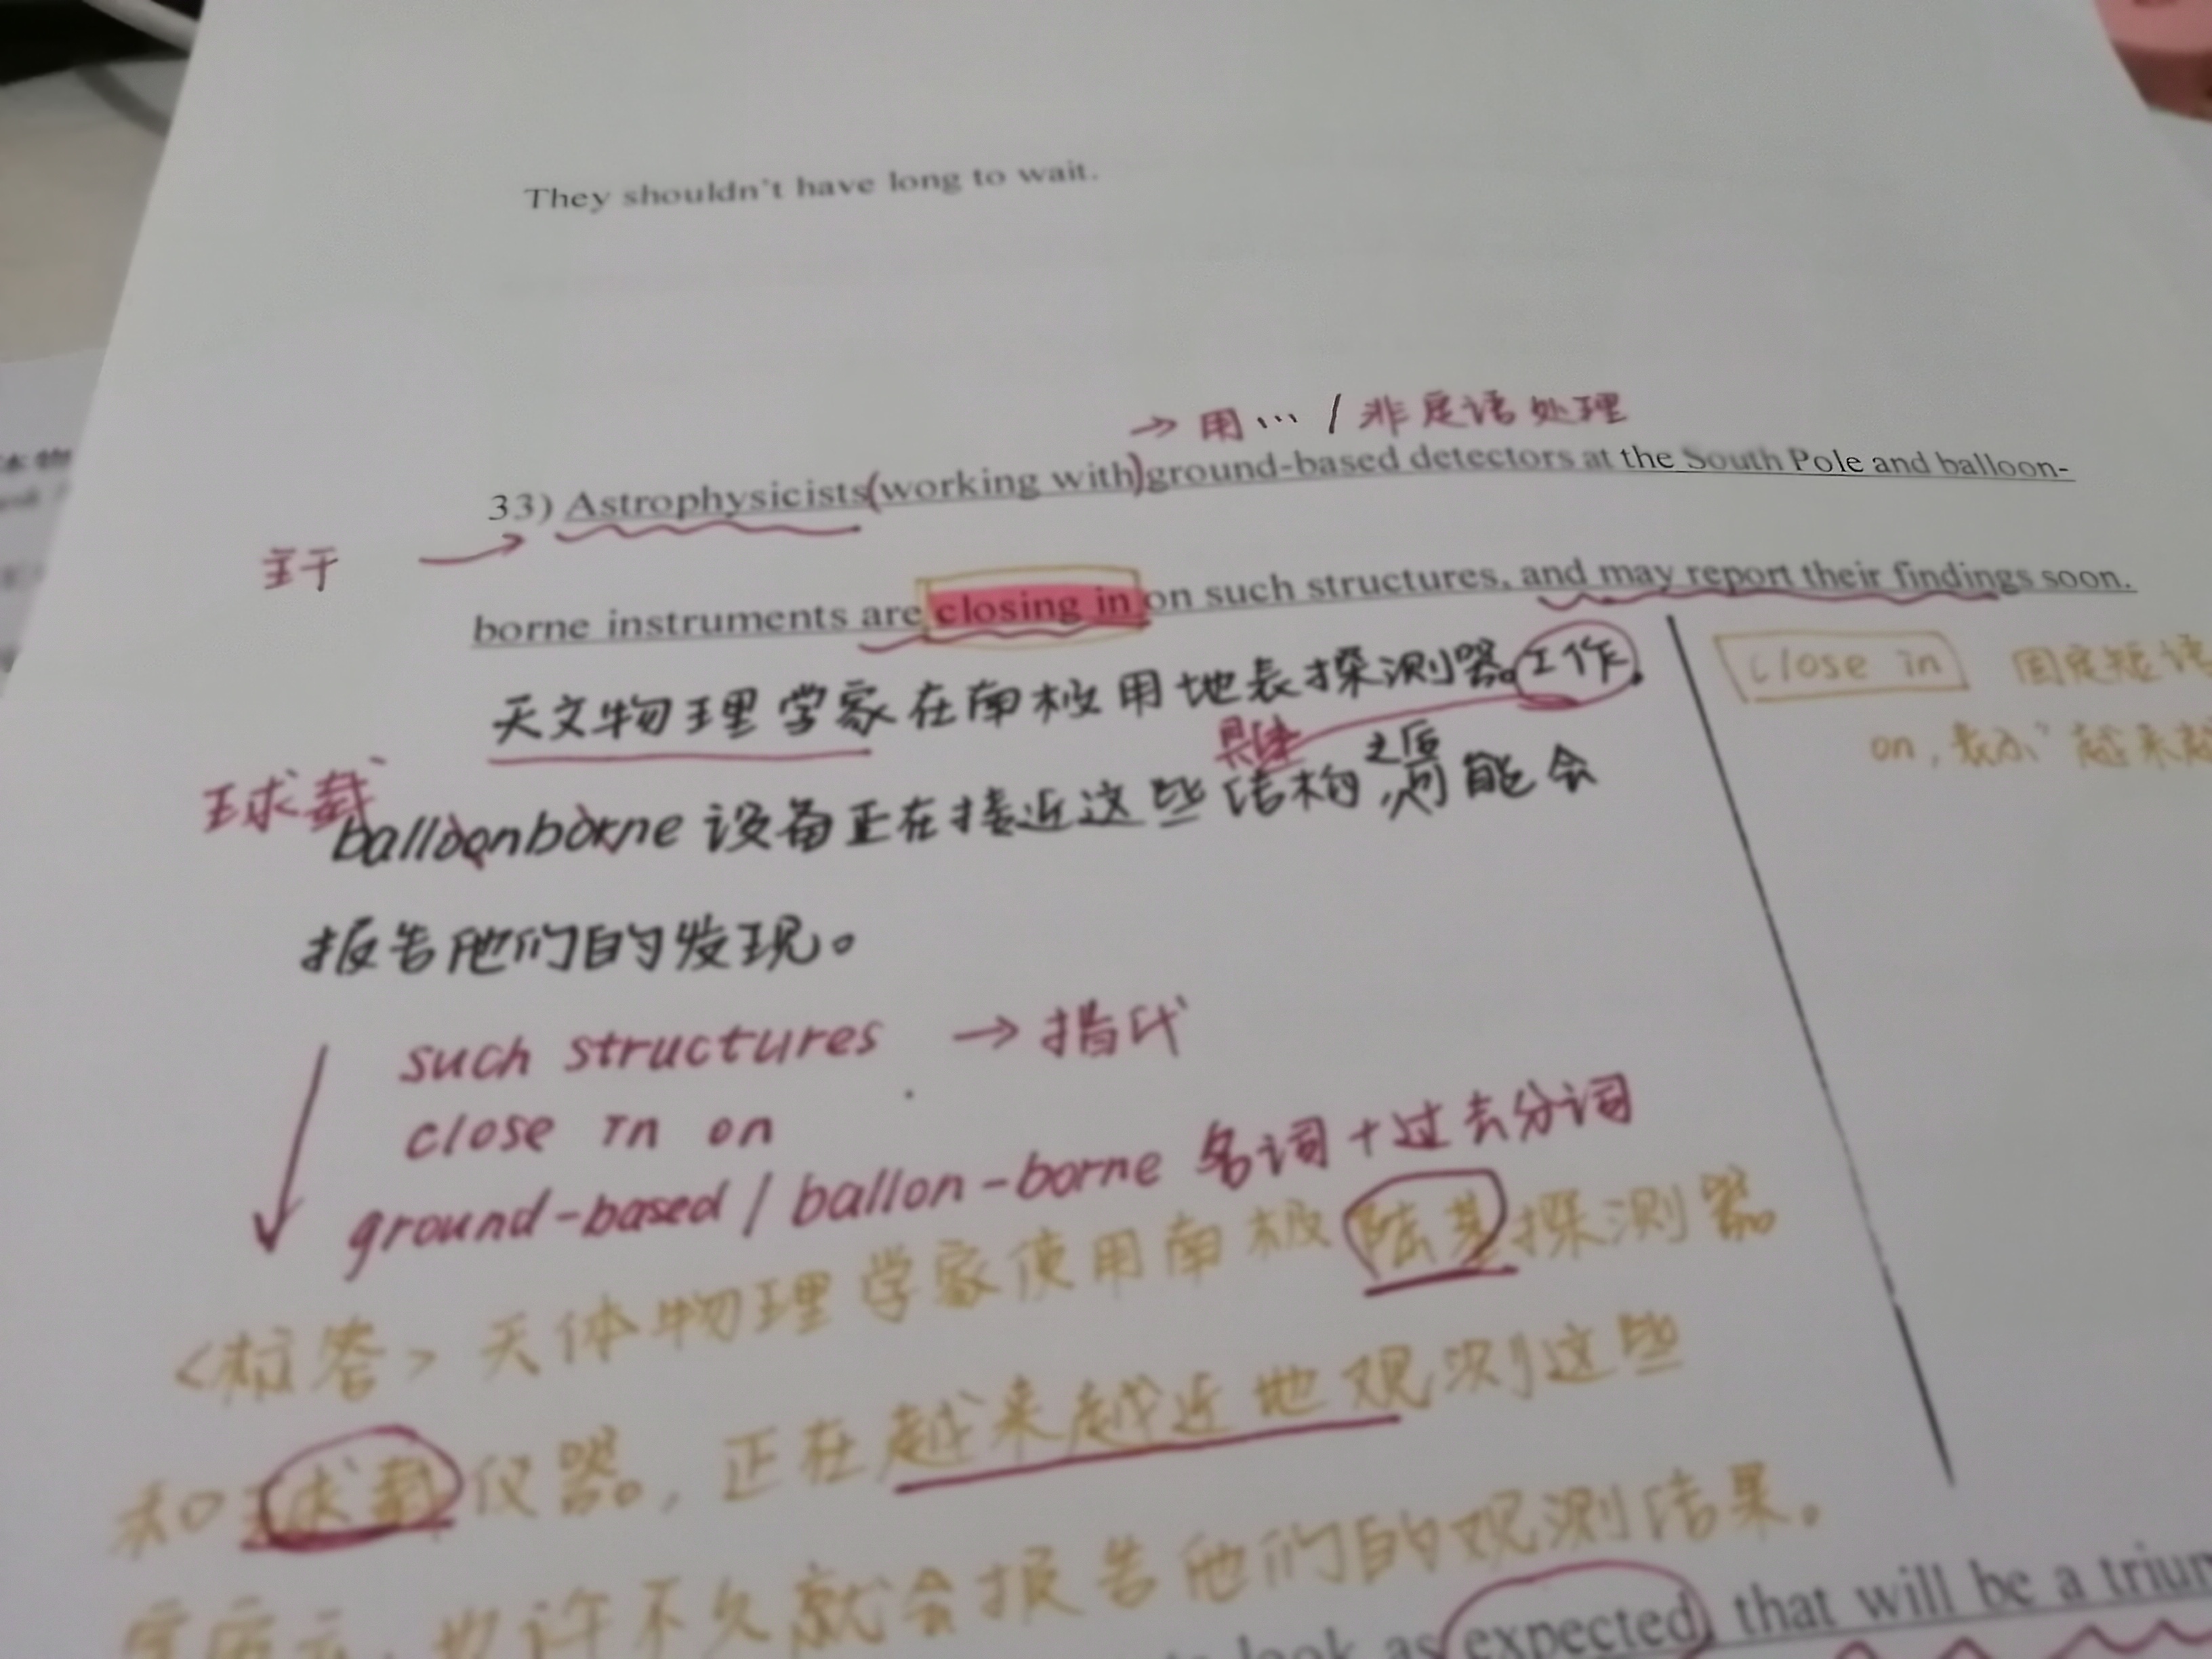 They shouldn't have long to wait.
→ 用… / 非定语处理
33) Astrophysicists (working with) ground-based detectors at the South Pole and balloon-
主干 →
borne instruments are closing in on such structures, and may report their findings soon.
天文物理学家在南极用地表探测器工作.
close in 固定短语
具体 之后
on, 表示"越来越
球载
balloonborne 设备正在接近这些结构,可能会
报告他们的发现。
such structures → 指代
close in on
ground-based / ballon-borne 名词+过去分词
<标答> 天体物理学家使用南极陆基探测器
和球载仪器,正在越来越近地观测这些
也许不久就会报告他们的观测结果。
look as expected, that will be a trium